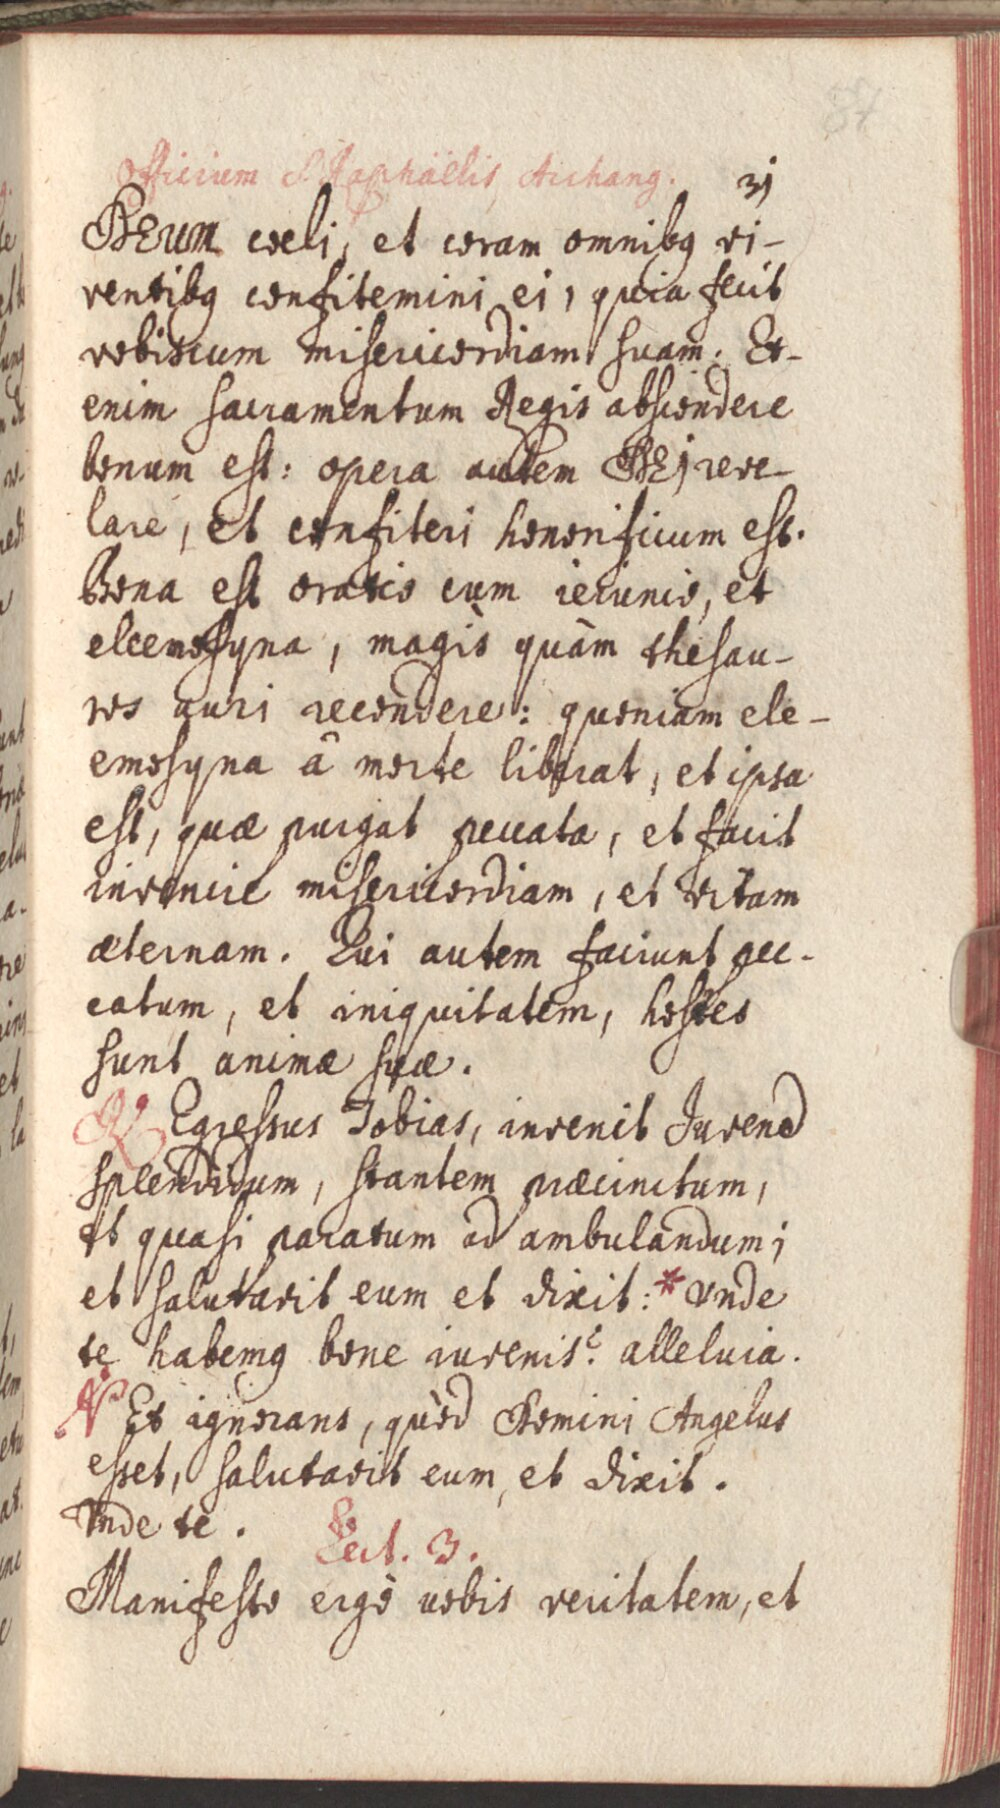 84
Officium S. Raphaëlis Archang. 31
DEUM cœli, et coram omnibꝯ vi-
ventibꝯ confitemini ei, quia fecit
vobiscum misericordiam suam. Et-
enim sacramentum Regis abscondere
bonum est: opera autem DEI reve-
lare, et confiteri honorificum est.
Bona est oratio cum ieiunio, et
eleemosyna, magìs quàm thesau-
ros auri recondere: quoniam ele-
emosyna â morte liberat, et ipsa
est, quæ purgat peccata, et facit
invenire misericordiam, et vitam
æternam. Qui autem faciunt pec-
catum, et iniquitatem, hostes
sunt animæ suæ.
℟ Egressus Tobias, invenit Juvenē
splendidum, stantem præcinctum,
et quasi paratum ad ambulandum;
et salutavit eum et dixit: * Unde
te habemꝯ bone iuvenis? alleluia.
℣ Et ignorans, quòd Domini Angelus
esset, salutavit eum, et dixit.
Unde te.
Lect. 3.
Manifesto ergò vobis veritatem, et